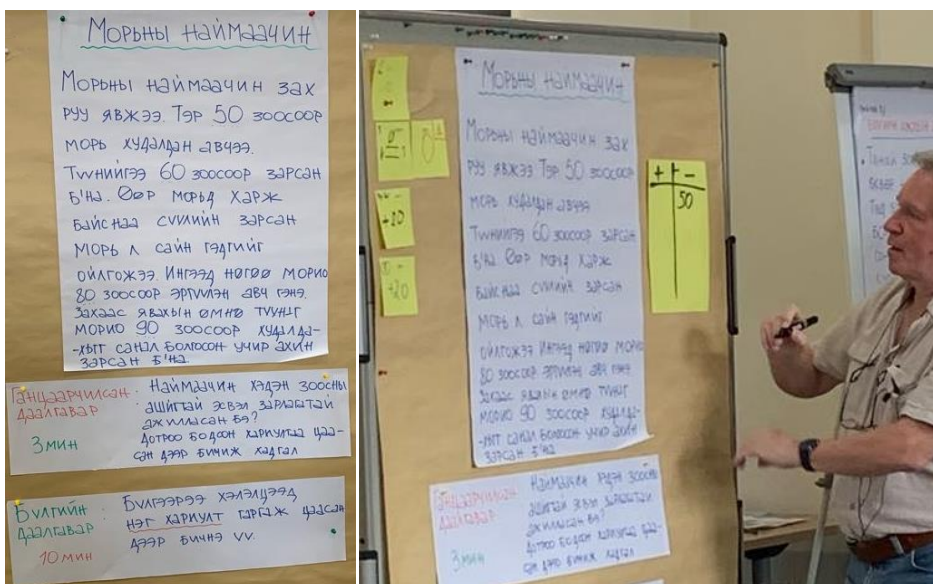 Морьны наймаачин
Морьны наймаачин зах
руу явжээ. Тэр 50 зоосоор
морь худалдан авчээ.
Түүнийгээ 60 зоосоор зарсан
б'на. Өөр морьд харж
байснаа сүүлийн зарсан
морь л сайн гэдгийг
ойлгожээ Ингээд нөгөө морио
80 зоосоор эргүүлэн авч гэнэ.
Захаас явахын өмнө түүнд
морио 90 зоосоор худалда-
-хыг санал болгосон учир ахин
зарсан б'на.
Ганцаарчилсан
даалгавар
3 мин
Наймаачин хэдэн зоосны
ашигтай эсвэл зарлагатай
ажилласан бэ?
Дотроо бодоон хариултаа цаа-
сан дээр бичиж хадгал
Бүлгийн
даалгавар
10 мин
Бүлгээрээ хэлэлцээд
нэг хариулт гаргаж цаасан
дээр бичнэ үү.
Морьны наймаачин
Морьны наймаачин зах
руу явжээ Тэр 50 зоосоор
морь худалдан авчээ
Түүнийгээ 60 зоосоор зарсан
б'на Өөр морьд харж
байснаа сүүлийн зарсан
морь л сайн гэдгийг
ойлгожээ Ингээд нөгөө морио
80 зоосоор эргүүлэн авч гэнэ
Захаас явахын өмнө түүнд
морио 90 зоосоор худалда-
-хыг санал болгосон учир ахин
зарсан б'на
Ганцаарчилсан
даалгавар
3 мин
Наймаачин хэдэн зоосны
ашигтай эсвэл зарлагатай
ажилласан бэ?
Дотроо бодоон хариултаа цаа-
сан дээр бичиж хадгал
+10
+20
+ + -
50